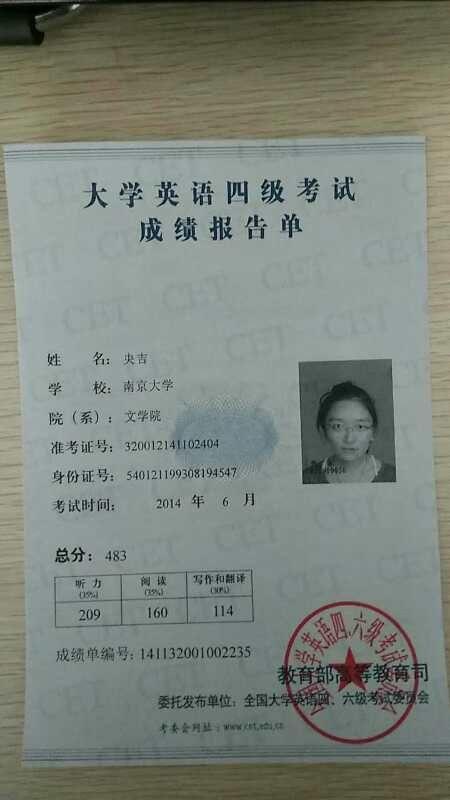 大学英语四级考试
成绩报告单
姓 名：央吉
学 校：南京大学
院（系）：文学院
准考证号：320012141102404
身份证号：540121199308194547
考试时间： 2014 年 6 月
总分： 483
听 力 阅 读 写作和翻译
(35%) (35%) (30%)
209 160 114
成绩单编号：141132001002235
教育部高等教育司
委托发布单位：全国大学英语四、六级考试委员会
考委会网址：www.cet.edu.cn